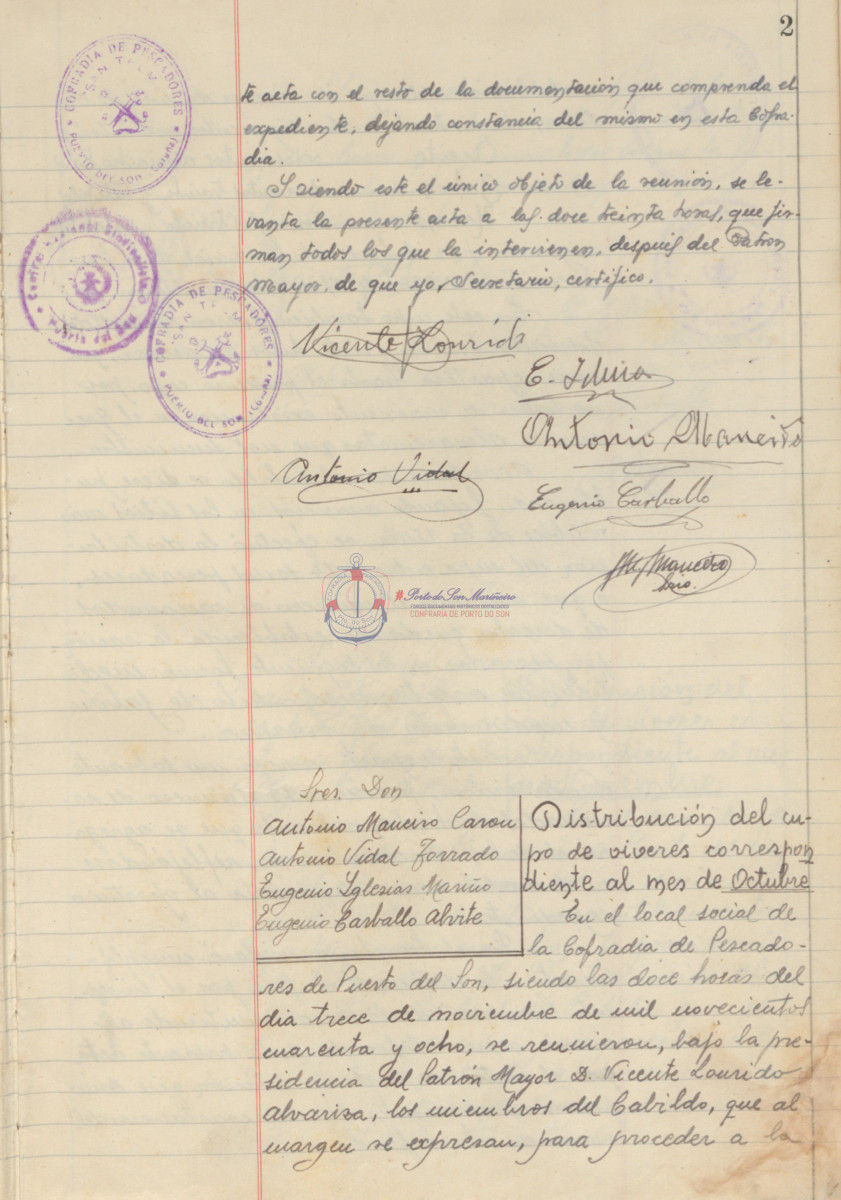 2
COFRADIA DE PESCADORES
"SAN TELMO"
PUERTO DEL SON (Coruña)
te acta con el resto de la documentación que comprenda el
expediente, dejando constancia del mismo en esta Cofra-
dia.
Y siendo este el único objeto de la reunión, se le-
vanta la presente acta a las doce treinta horas, que fir-
man todos los que la intervienen, después del Patron
Mayor, de que yo, Secretario, certifico.
Puerto del Son
COFRADIA DE PESCADORES
PUERTO DEL SON (Coruña)
Vicente Lourido
Antonio Maneiro
Antonio Vidal
Eugenio Carballo
Maneiro
Srio.
#PortodoSonMariñeiro
CONFRARIA DE PORTO DO SON
Sres. Don
Antonio Maneiro Carou
Antonio Vidal Torrado
Eugenio Yglesias Mariño
Eugenio Carballo Alvite
Distribución del cu-
po de viveres correspon
diente al mes de Octubre
En el local social de
la Cofradia de Pescado-
res de Puerto del Son, siendo las doce horas del
dia trece de noviembre de mil novecientos
cuarenta y ocho, se reunieron, bajo la pre-
sidencia del Patrón Mayor D. Vicente Lourido
Alvariza, los miembros del Cabildo, que al
margen se expresan, para proceder a la